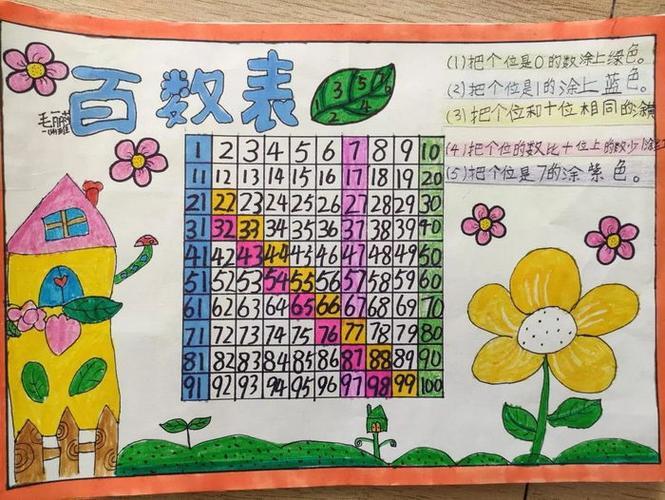 百数表
3 5
2 4
(1)把个位是0的数涂上绿色。
(2)把个位是1的涂上蓝色。
(3)把个位和十位相同的涂
(4)把个位的数比十位上的数少1涂
(5)把个位是7的涂紫色。
1 2 3 4 5 6 7 8 9 10
11 12 13 14 15 16 17 18 19 20
21 22 23 24 25 26 27 28 29 30
31 32 33 34 35 36 37 38 39 40
41 42 43 44 45 46 47 48 49 50
51 52 53 54 55 56 57 58 59 60
61 62 63 64 65 66 67 68 69 70
71 72 73 74 75 76 77 78 79 80
81 82 83 84 85 86 87 88 89 90
91 92 93 94 95 96 97 98 99 100